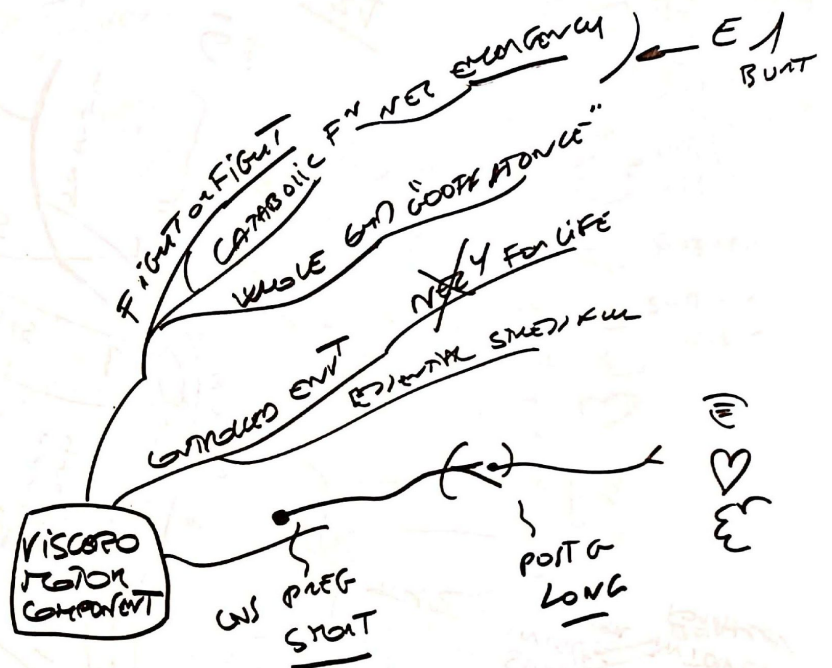 FIGHT OR FIGHT
CATABOLIC FN NEC EMERGENCY
E
BURT
WHOLE "GOOFF AT ONCE"
CONTROLLED ENVT NEC Y FOR LIFE
ESSENTIAL STRESSFUL
VISCERO
MOTOR
COMPONENT
CNS PREG
SHORT
POST G
LONG